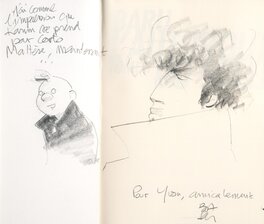 J'ai comme
l'impression que
Tarrin me prend
pour Corto
Maltese, maintenant
...
Pour Yvon, amicalement